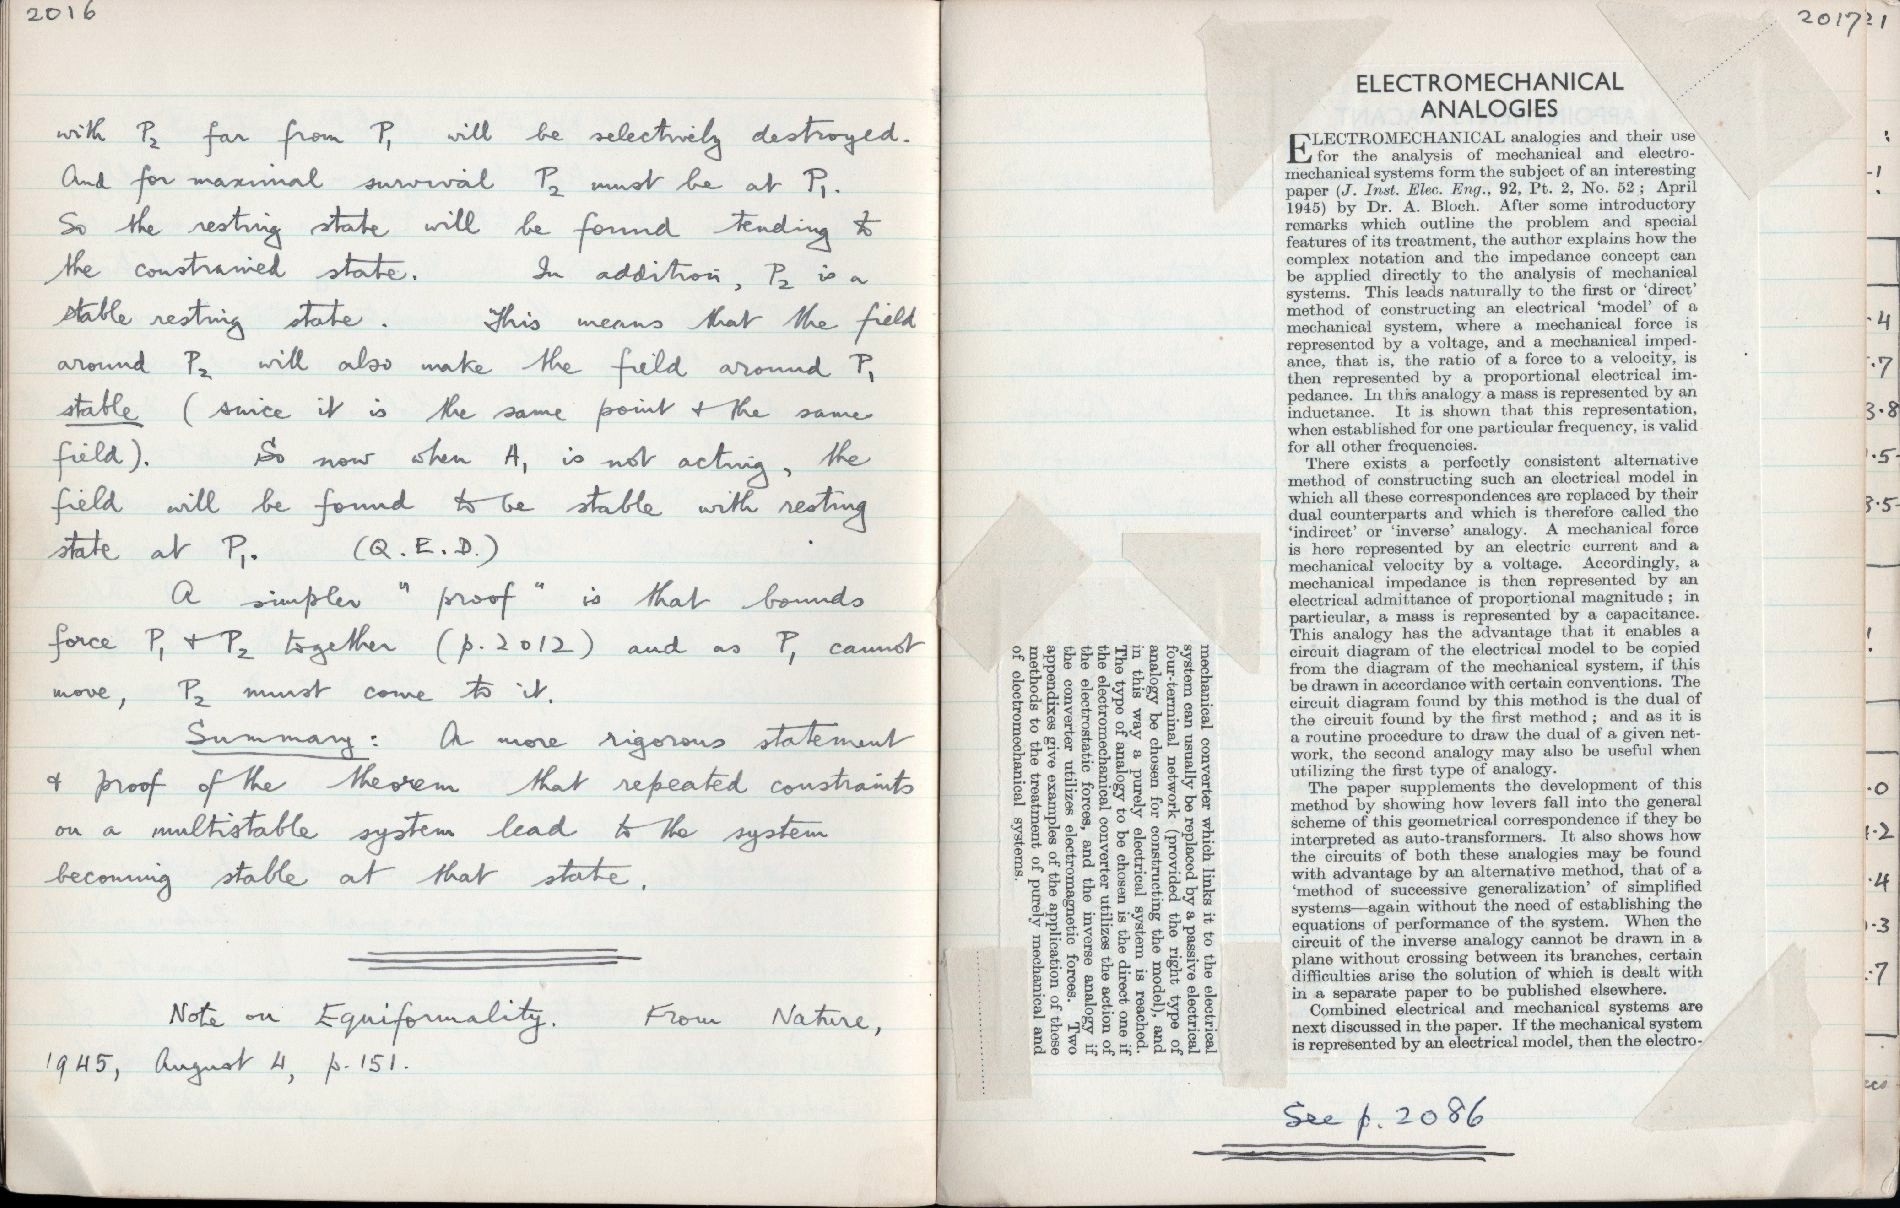 2016
with P₂ far from P₁ will be selectively destroyed.
And for maximal survival P₂ must be at P₁.
So the resting state will be found tending to
the constrained state. In addition, P₂ is a
stable resting state. This means that the field
around P₂ will also make the field around P₁
stable (since it is the same point & the same
field). So now when A₁ is not acting, the
field will be found to be stable with resting
state at P₁. (Q.E.D.)
A simpler "proof" is that bounds
force P₁ & P₂ together (p.2012) and as P₁ cannot
move, P₂ must come to it.
Summary: A more rigorous statement
& proof of the theorem that repeated constraints
on a multistable system lead to the system
becoming stable at that state.
Note on Equiformality. From Nature,
1945, August 4, p.151.
2017
21
ELECTROMECHANICAL
ANALOGIES
ELECTROMECHANICAL analogies and their use
for the analysis of mechanical and electro-
mechanical systems form the subject of an interesting
paper (J. Inst. Elec. Eng., 92, Pt. 2, No. 52; April
1945) by Dr. A. Bloch. After some introductory
remarks which outline the problem and special
features of its treatment, the author explains how the
complex notation and the impedance concept can
be applied directly to the analysis of mechanical
systems. This leads naturally to the first or 'direct'
method of constructing an electrical 'model' of a
mechanical system, where a mechanical force is
represented by a voltage, and a mechanical imped-
ance, that is, the ratio of a force to a velocity, is
then represented by a proportional electrical im-
pedance. In this analogy a mass is represented by an
inductance. It is shown that this representation,
when established for one particular frequency, is valid
for all other frequencies.
There exists a perfectly consistent alternative
method of constructing such an electrical model in
which all these correspondences are replaced by their
dual counterparts and which is therefore called the
'indirect' or 'inverse' analogy. A mechanical force
is here represented by an electric current and a
mechanical velocity by a voltage. Accordingly, a
mechanical impedance is then represented by an
electrical admittance of proportional magnitude; in
particular, a mass is represented by a capacitance.
This analogy has the advantage that it enables a
circuit diagram of the electrical model to be copied
from the diagram of the mechanical system, if this
be drawn in accordance with certain conventions. The
circuit diagram found by this method is the dual of
the circuit found by the first method; and as it is
a routine procedure to draw the dual of a given net-
work, the second analogy may also be useful when
utilizing the first type of analogy.
The paper supplements the development of this
method by showing how levers fall into the general
scheme of this geometrical correspondence if they be
interpreted as auto-transformers. It also shows how
the circuits of both these analogies may be found
with advantage by an alternative method, that of a
'method of successive generalization' of simplified
systems—again without the need of establishing the
equations of performance of the system. When the
circuit of the inverse analogy cannot be drawn in a
plane without crossing between its branches, certain
difficulties arise the solution of which is dealt with
in a separate paper to be published elsewhere.
Combined electrical and mechanical systems are
next discussed in the paper. If the mechanical system
is represented by an electrical model, then the electro-
mechanical converter which links it to the electrical
system can usually be replaced by a passive electrical
four-terminal network (provided the right type of
analogy be chosen for constructing the model), and
in this way a purely electrical system is reached.
The type of analogy to be chosen is the direct one if
the electromechanical converter utilizes the action of
the electrostatic forces, and the inverse analogy if
the converter utilizes electromagnetic forces. Two
appendixes give examples of the application of these
methods to the treatment of purely mechanical and
of electromechanical systems.
See p. 2086